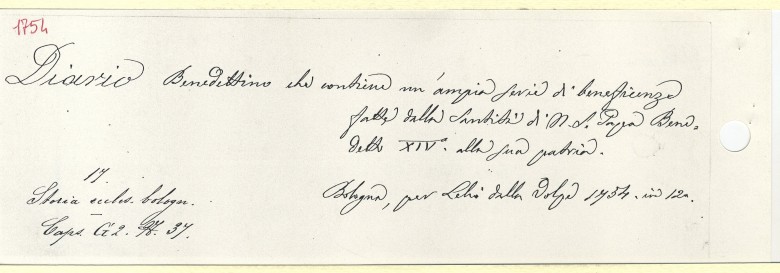 1754
Diario Benedettino che contiene un'ampia serie di beneficenze
fatte dalla Santità di N. S. Papa Bene-
detto XIV° alla sua patria.
Bologna, per Lelio dalla Volpe 1754. in 12°.
17.
Storia eccles. bologn.
Caps. A 2. N. 37.